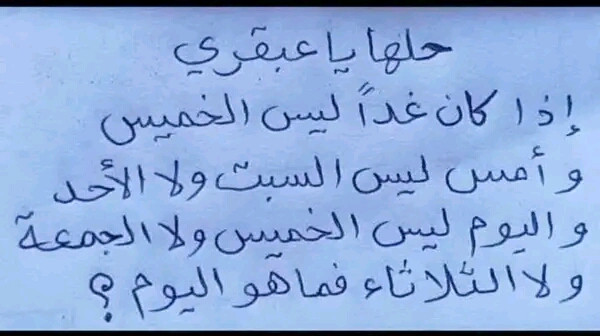 حلها يا عبقري
إذا كان غداً ليس الخميس
و أمس ليس السبت ولا الأحد
و اليوم ليس الخميس ولا الجمعة
ولا الثلاثاء فما هو اليوم ؟